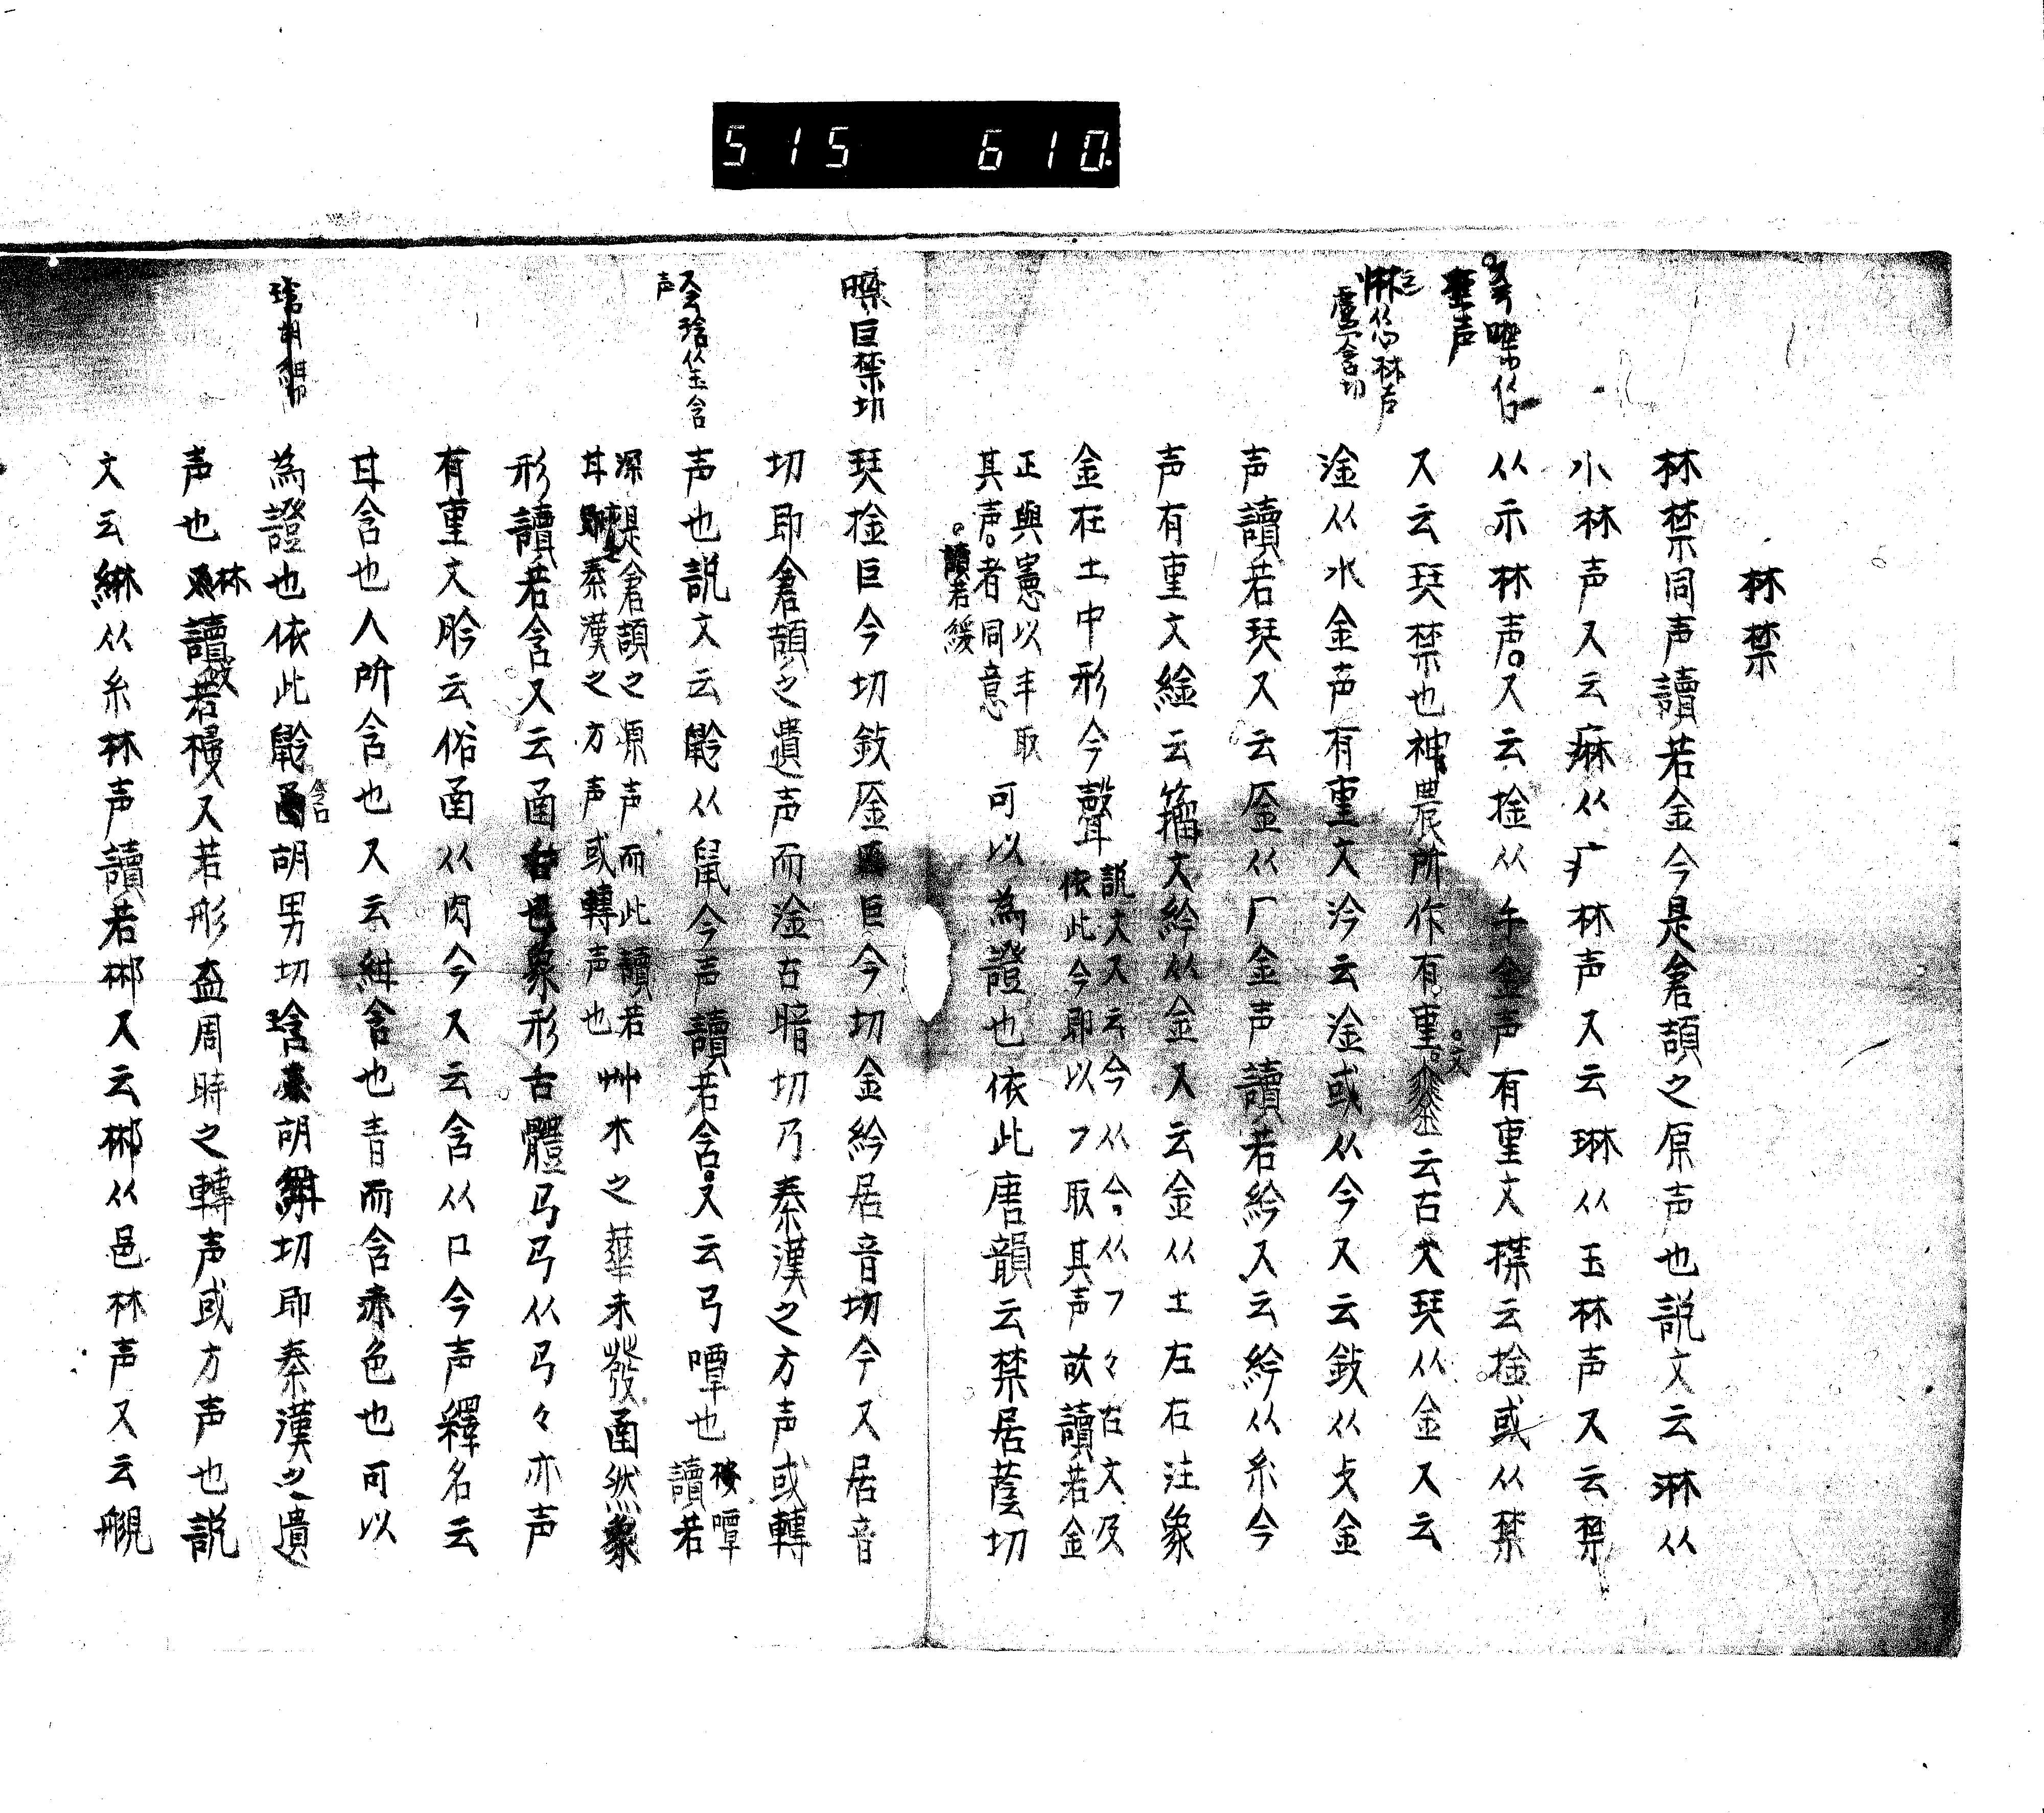 515 610.
林禁
林禁同声讀若金今是倉頡之原声也説文云淋从
水林声又云痳从疒林声又云琳从玉林声又云禁
从示林声又云捦从手金声有重文㩒云捦或从禁
又云琴禁也神農所作有重文𨥏云古文琴从金又云
淦从水金声有重文汵云淦或从今又云㪁从攴金
声讀若琴又云厱从厂金声讀若紟又云紟从糸今
声有重文䋮云籀文紟从金又云金从土左右注象
金在土中形今聲
説文又云今从亼从㇇㇇古文及
依此今即以㇇取其声故讀若金
正與憲以丰取
其声者同意
讀若緩
可以為證也依此唐韻云禁居蔭切
琴捦巨今切㪁厱巨今切金紟居音切今又居音
切即倉頡之遺声而淦古暗切乃秦漢之方声或轉
声也説文云䶃从鼠今声讀若含又云㔾嘾也
讀若
深是倉頡之源声而此讀若
甘即秦漢之方声或轉声也
艸木之華未發圅然象
形讀若含又云圅舌也象形舌體㔾㔾从㔾㔾亦声
有重文肣云俗圅从肉今又云含从口今声釋名云
甘含也人所含也又云紺含也青而含赤色也可以
為證也依此䶃圅含胡男切琀胡紺切即秦漢之遺
声也林讀若梫又若彤盍周時之轉声或方声也説
文云綝从糸林声讀若郴又云郴从邑林声又云覙
噤从口
禁声
惏从心林声
盧含切
噤巨禁切
又云琀从玉含
声
琀胡紺切